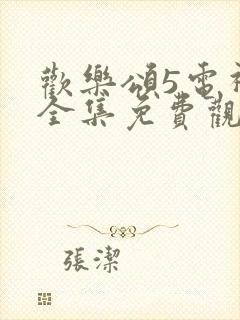 歡樂頌5電視
全集免費觀
張潔